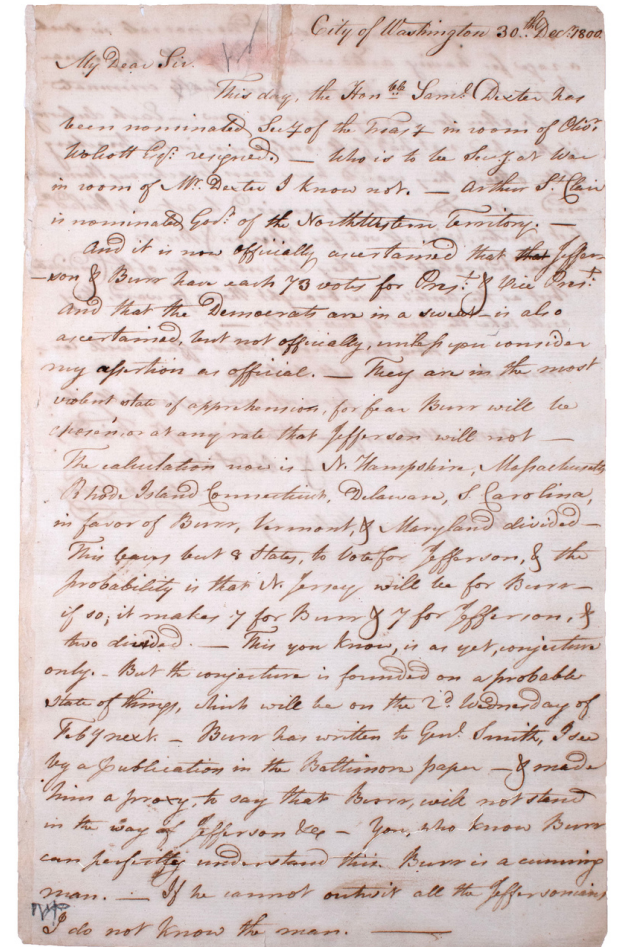 City of Washington 30.th Decr. 1800
My Dear Sir.
This day, the Honble Saml. Dexter has
been nominated, Secy of the Treasy in room of Olivr.
Wolcott Esqr. resigned. — Who is to be Secy at War
in room of Mr. Dexter I know not. — Arthur St. Clair
is nominated Govr. of the Northwestern Territory. —
And it is now officially ascertained that that Jeffer-
-son & Burr have each 73 votes for Prest. & Vice Prest.
And that the Democrats are in a sweat — is also
ascertained, but not officially, unless you consider
my assertion as official. — They are in the most
violent state of apprehension, for fear Burr will be
chosen or at any rate that Jefferson will not —
The calculation now is — N. Hampshire, Massachusetts
Rhode Island Connecticut, Delaware, S Carolina,
in favor of Burr, Vermont, & Maryland divided —
This leaves but 8 States, to vote for Jefferson, & the
probability is that N. Jersey will be for Burr —
if so, it makes 7 for Burr & 7 for Jefferson, &
two divided. — This you know, is as yet, conjecture
only. — But the conjecture is founded on a probable
state of things, which will be on the 2d. Wednesday of
Feby next. — Burr has written to Genl. Smith, I see
by a publication in the Baltimore paper — & made
him a proxy, to say that Burr, will not stand
in the way of Jefferson &c — You, who know Burr
can perfectly understand this. Burr is a cunning
man. — If he cannot outwit all the Jeffersonians
I do not know the man. —